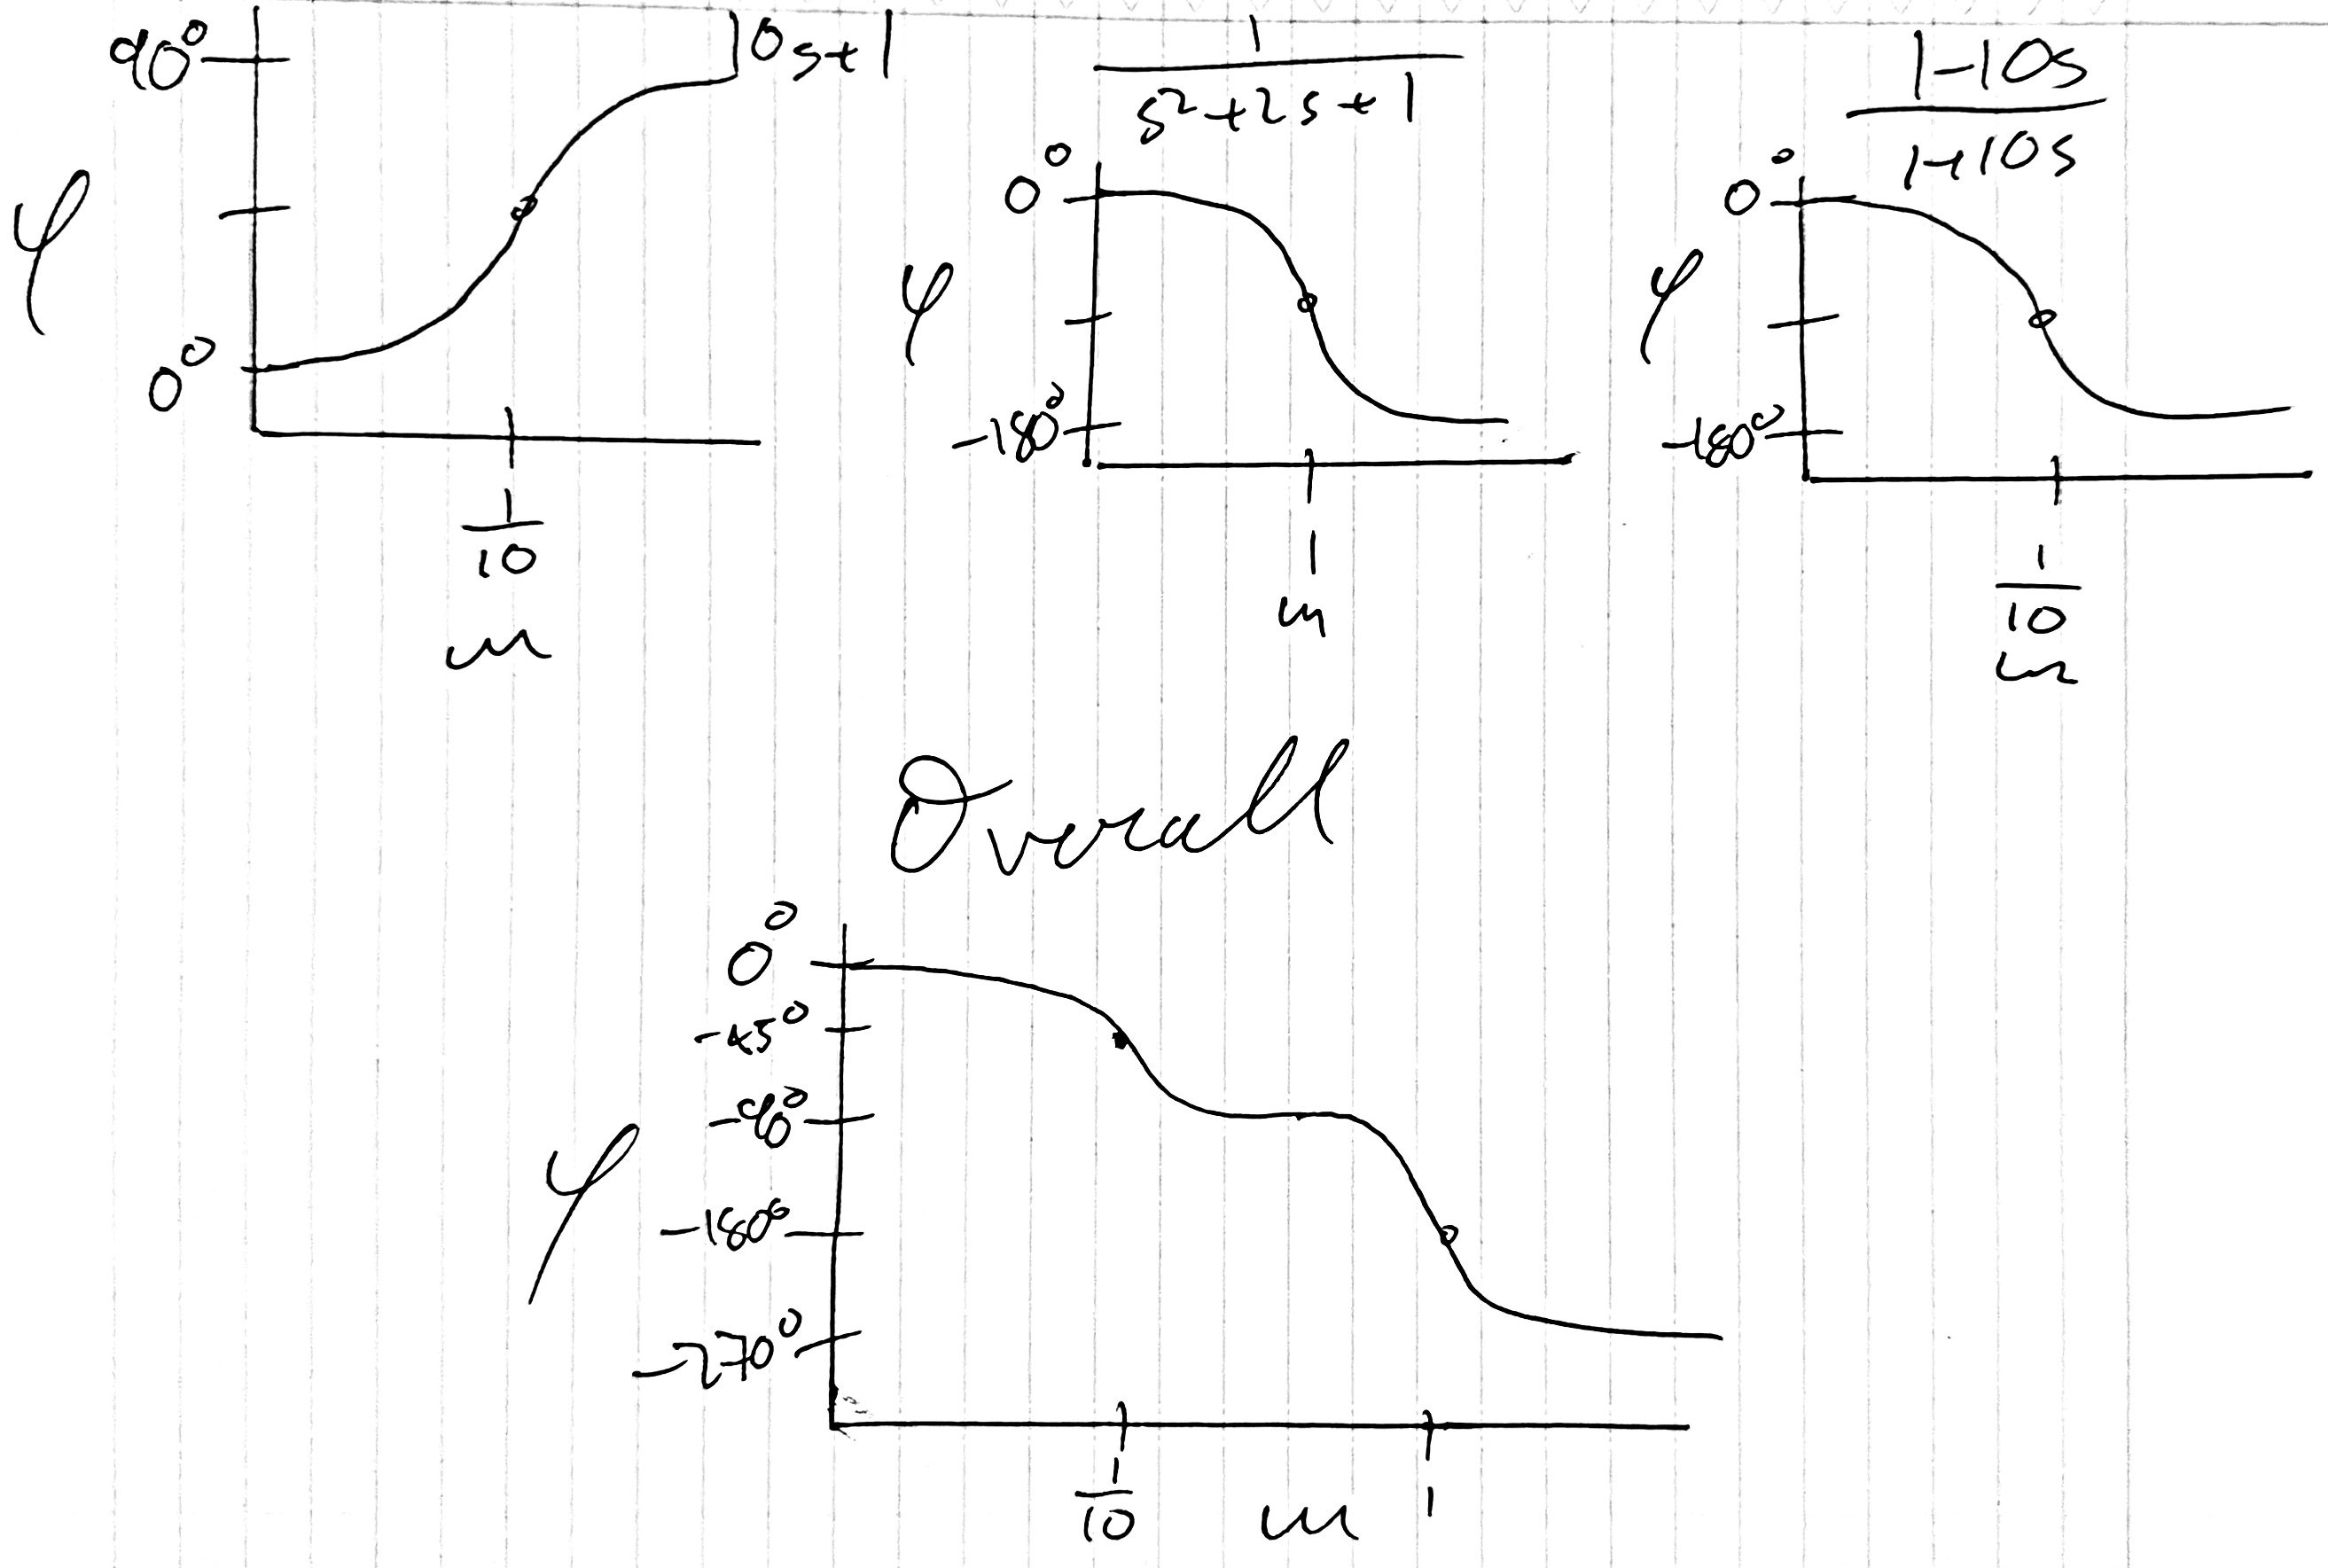 90°
10s+1
φ
0°
1/10
ω
1/(s²+2s+1)
0°
φ
-180°
1
ω
(1-10s)/(1+10s)
0°
φ
-180°
1/10
ω
Overall
0°
-45°
-90°
φ
-180°
-270°
1/10
ω
1